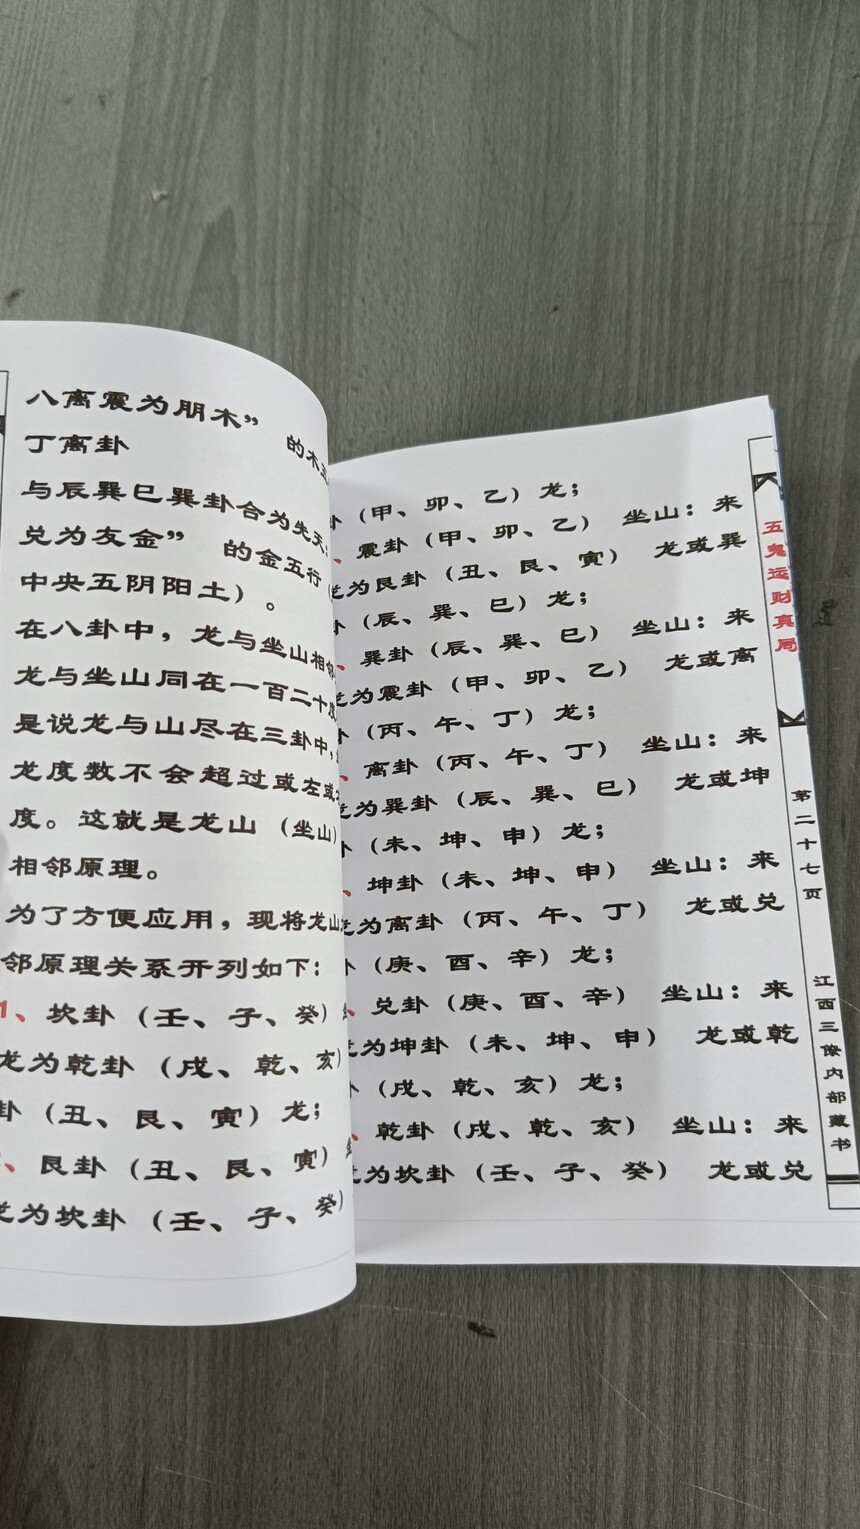 八离震为朋木” 的木五
丁离卦
与辰巽巳巽卦合为先天
兑为友金” 的金五行
中央五阴阳土）。
在八卦中，龙与坐山相邻
龙与坐山同在一百二十度
是说龙与山尽在三卦中，
龙度数不会超过或左或
度。这就是龙山（坐山）
相邻原理。
为了方便应用，现将龙山
邻原理关系开列如下：
1、坎卦（壬、子、癸）
龙为乾卦（戌、乾、亥）
卦（丑、艮、寅）龙；
、艮卦（丑、艮、寅）
龙为坎卦（壬、子、癸）
卦（甲、卯、乙）龙；
、震卦（甲、卯、乙） 坐山：来
龙为艮卦（丑、艮、寅） 龙或巽
卦（辰、巽、巳）龙；
、巽卦（辰、巽、巳） 坐山：来
龙为震卦（甲、卯、乙） 龙或离
卦（丙、午、丁）龙；
、离卦（丙、午、丁） 坐山：来
龙为巽卦（辰、巽、巳） 龙或坤
卦（未、坤、申）龙；
、坤卦（未、坤、申） 坐山：来
龙为离卦（丙、午、丁） 龙或兑
卦（庚、酉、辛）龙；
、兑卦（庚、酉、辛） 坐山：来
龙为坤卦（未、坤、申） 龙或乾
卦（戌、乾、亥）龙；
、乾卦（戌、乾、亥） 坐山：来
龙为坎卦（壬、子、癸） 龙或兑
五鬼运财真局
第二十七页
江西三僚内部藏书